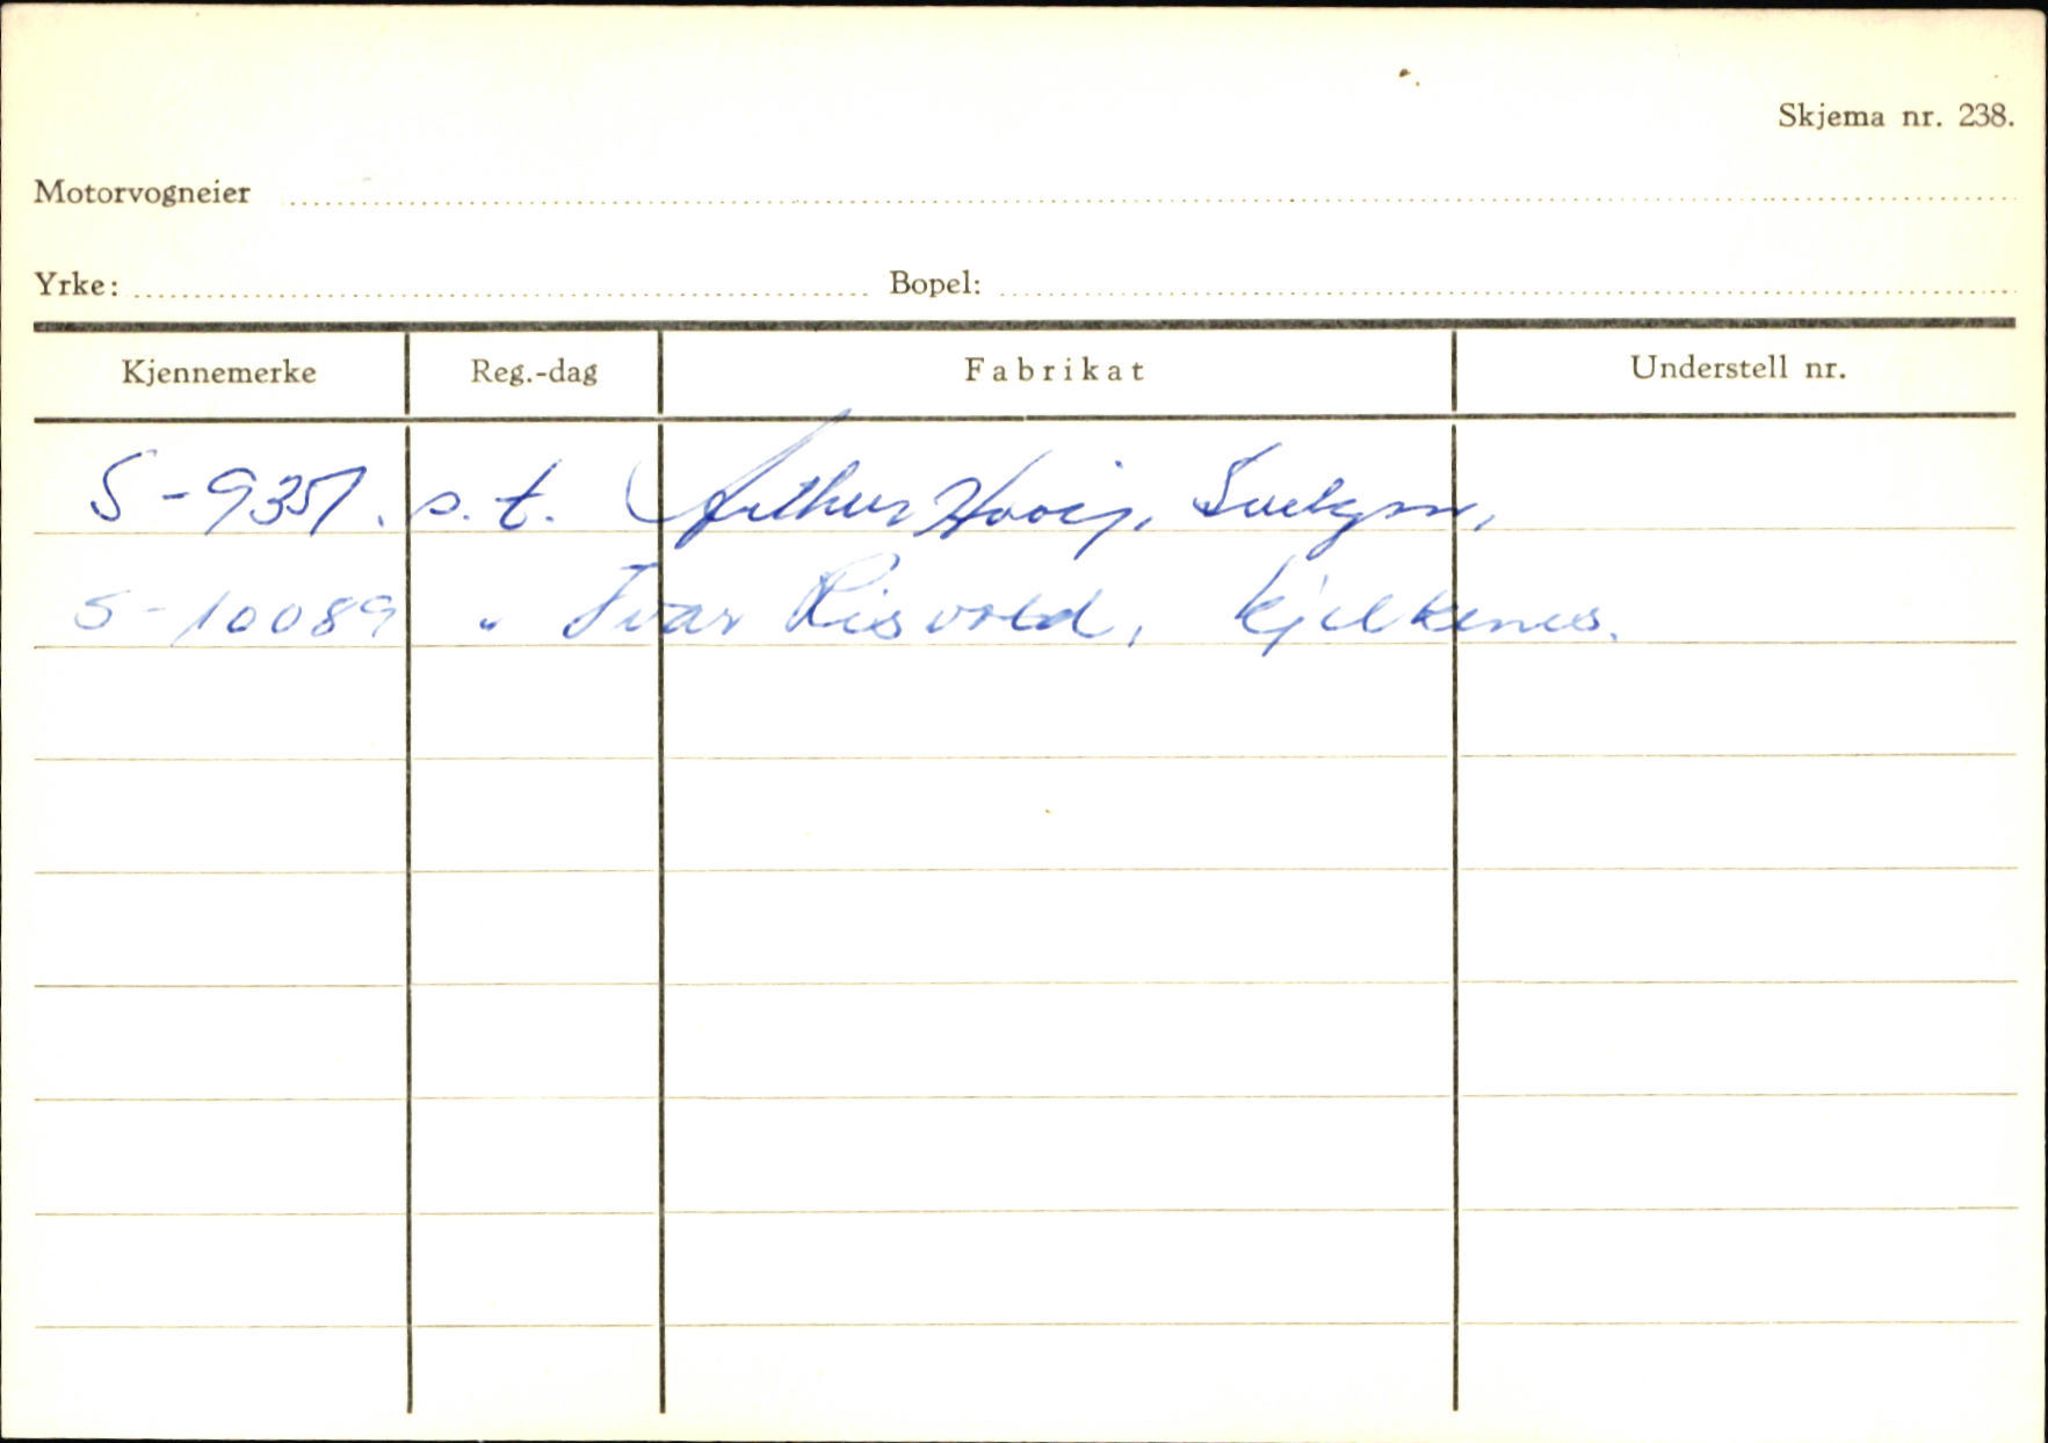 Skjema nr. 238.
Motorvogneier
Yrke: Bopel:
Kjennemerke Reg.-dag Fabrikat Understell nr.
S-9351. s.t. Arthur
S-10089 " Ivar Risvold, Kjelkenes.